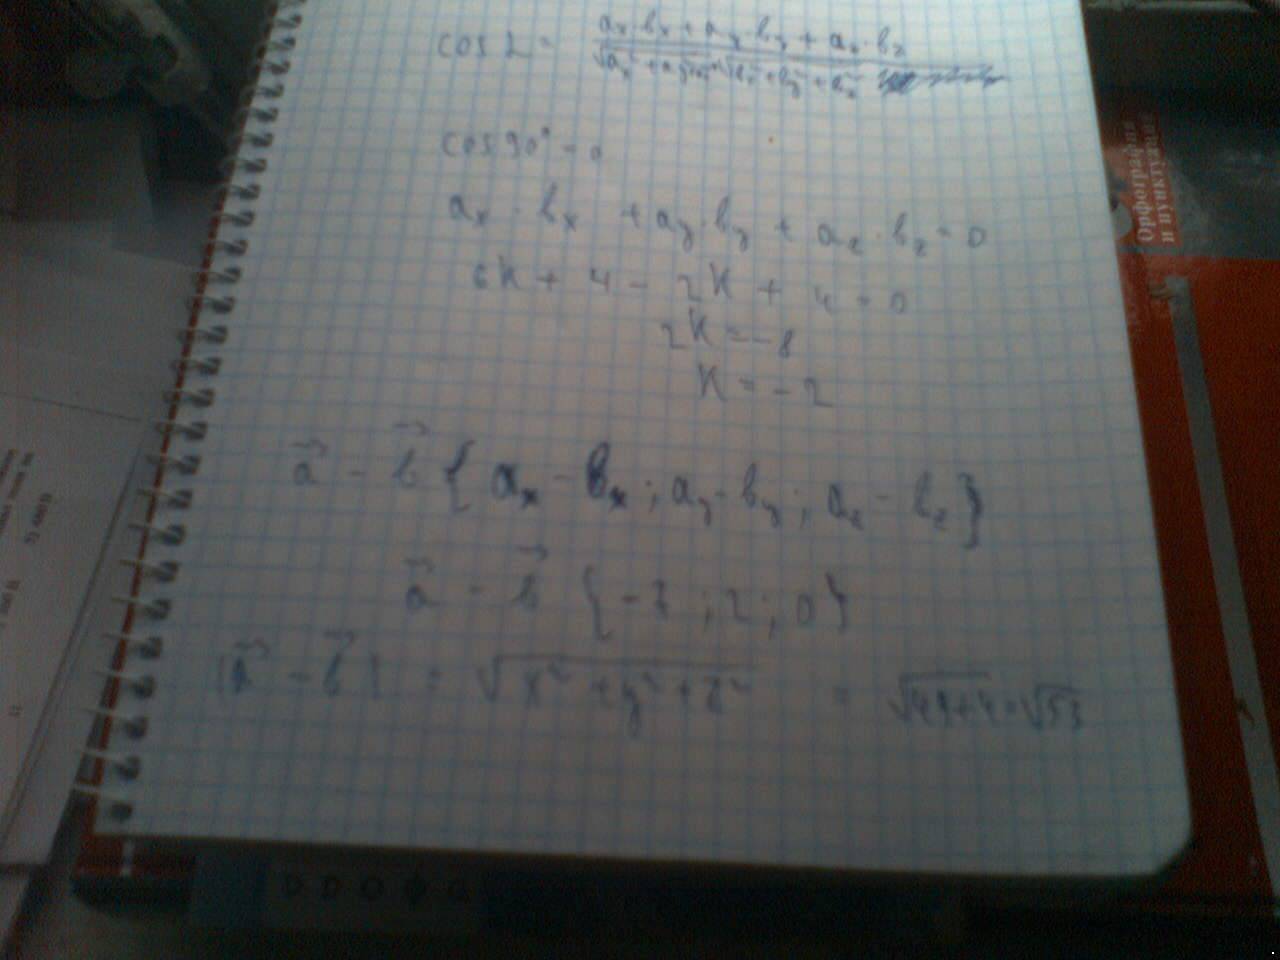 cos α = (aₓ·bₓ + a_y·b_y + a_z·b_z) / (√(aₓ² + a_y² + a_z²)·√(bₓ² + b_y² + b_z²))
cos 90° = 0
aₓ · bₓ + a_y·b_y + a_z·b_z = 0
6K + 4 - 2K + 4 = 0
2K = -8
K = -2
a⃗ - b⃗ { aₓ - bₓ ; a_y - b_y ; a_z - b_z }
a⃗ - b⃗ { -7 ; 2 ; 0 }
|a⃗ - b⃗| = √(x² + y² + z²) = √(49+4) = √53
Орфография
и пунктуация